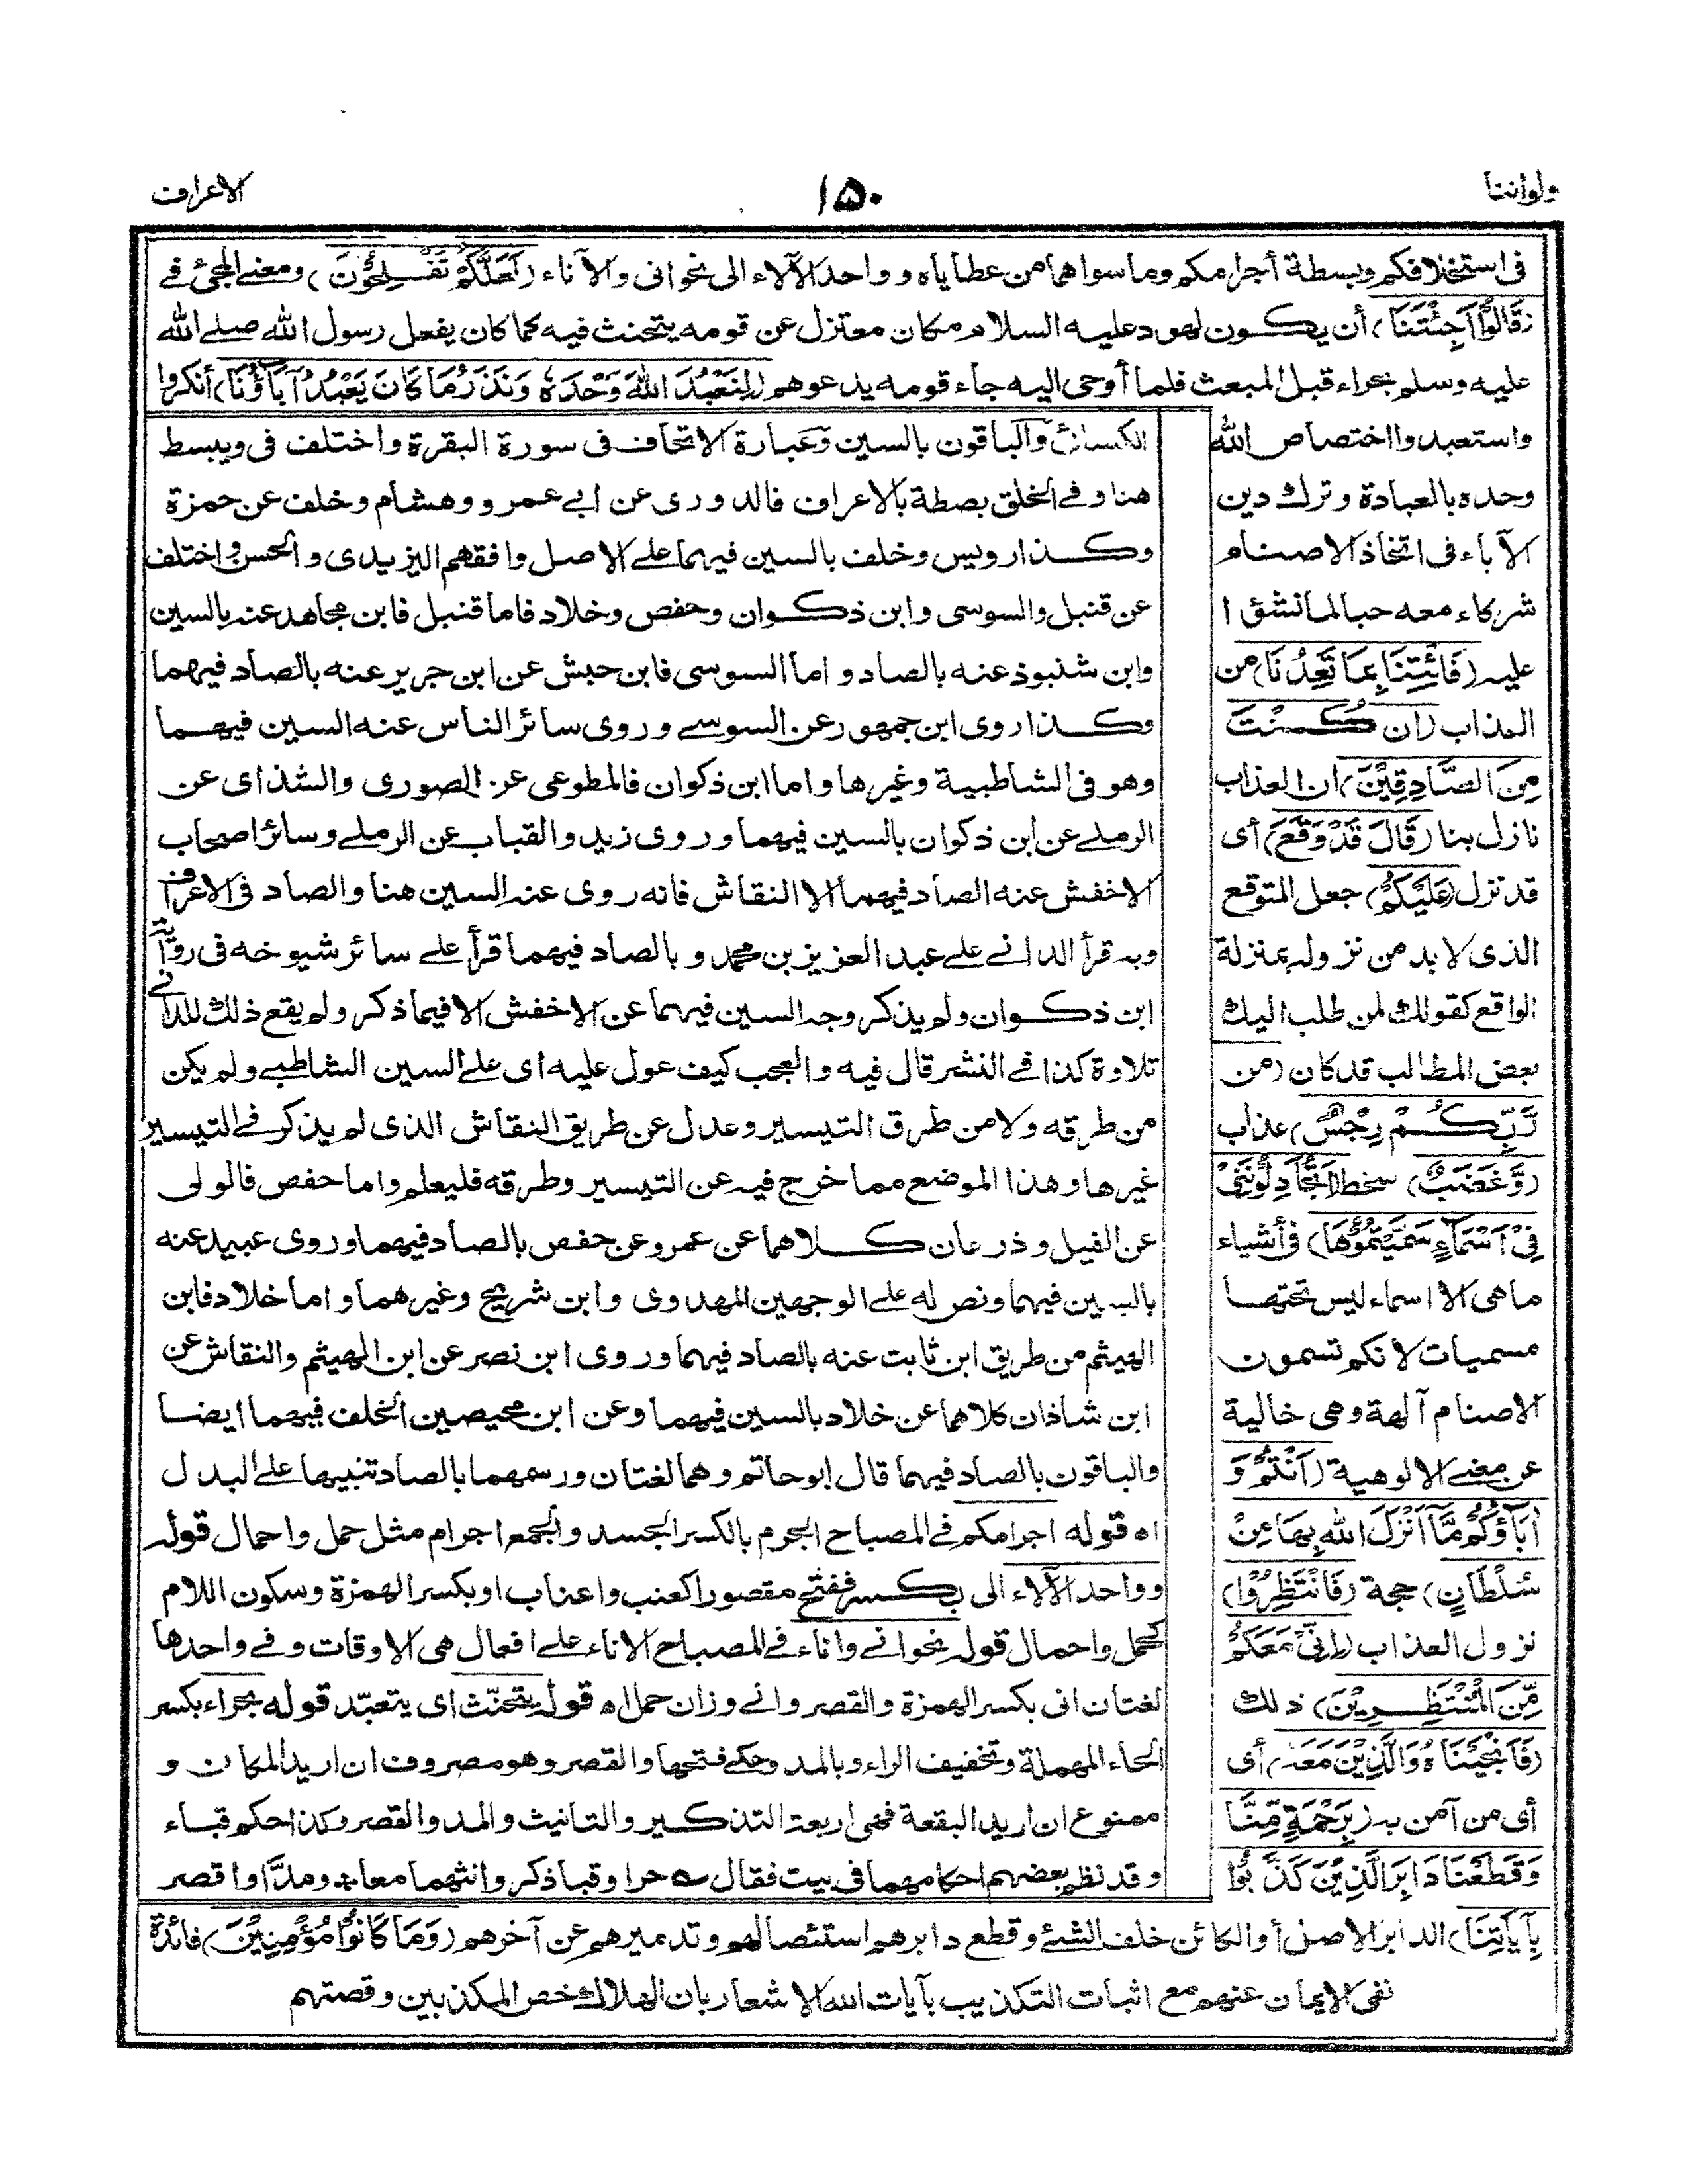 ولواننا
١٥٠
الاعراف
فى استخلافكم وبسطة أجرامكم وما سواهما من عطاياه وواحد الآلاء الى نحو انى والآناء (لَعَلَّكُمْ تُفْلِحُوْنَ) ومعنى المجئ فى
(قَالُوْا أَجِئْتَنَا) أن يكون لهود عليه السلام مكان معتزل عن قومه يتحنث فيه كما كان يفعل رسول الله صلى الله
عليه وسلم بحراء قبل المبعث فلما أوحى اليه جاء قومه يدعوهم (لِنَعْبُدَ اللهَ وَحْدَهٗ وَنَذَرَ مَا كَانَ يَعْبُدُ آبَاؤُنَا) أنكروا
واستعبدوا اختصاص الله
وحده بالعبادة وترك دين
الآباء فى اتخاذ الاصنام
شركاء معه حبا لما نشؤا
عليه (فَأْتِنَا بِمَا تَعِدُنَا) من
العذاب (ان كُنْتَ
مِنَ الصَّادِقِيْنَ) ان العذاب
نازل بنا (قَالَ قَدْ وَقَعَ) أى
قد نزل (عَلَيْكُمْ) جعل المتوقع
الذى لا بد من نزوله بمنزلة
الواقع كقولك لمن طلب اليك
بعض المطالب قد كان (من
رَّبِّكُمْ رِجْسٌ) عذاب
(وَّغَضَبٌ) سخط (أَتُجَادِلُوْنَنِيْ
فِيْ أَسْمَاءٍ سَمَّيْتُمُوْهَا) فى أشياء
ما هى الا اسماء ليس تحتها
مسميات لانكم تسمون
الاصنام آلهة وهى خالية
عن معنى الالوهية (أَنْتُمْ وَ
آبَاؤُكُمْ مَّا أَنْزَلَ اللهُ بِهَا مِنْ
سُلْطَانٍ) حجة (فَانْتَظِرُوْا)
نزول العذاب (إِنِّيْ مَعَكُمْ
مِّنَ الْمُنْتَظِرِيْنَ) ذلك
(فَأَنْجَيْنَاهُ وَالَّذِيْنَ مَعَهٗ) أى
أى من آمن به (بِرَحْمَةٍ مِّنَّا
وَقَطَعْنَا دَابِرَ الَّذِيْنَ كَذَّبُوْا
الكسائى والباقون بالسين وعبارة الاتحاف فى سورة البقرة واختلف فى ويبسط
هنا وفى الخلق بصطة بالاعراف فالدورى عن ابى عمرو وهشام وخلف عن حمزة
وكذا رويس وخلف بالسين فيهما على الاصل وافقهم اليزيدى والحسن واختلف
عن قنبل والسوسى وابن ذكوان وحفص وخلاد فاما قنبل فابن مجاهد عنه بالسين
وابن شنبوذ عنه بالصاد واما السوسى فابن حبش عن ابن جرير عنه بالصاد فيهما
وكذا روى ابن جمهور عن السوسى وروى سائر الناس عنه السين فيهما
وهو فى الشاطبية وغيرها واما ابن ذكوان فالمطوعى عن الصورى والشذاى عن
الرملى عن ابن ذكوان بالسين فيهما وروى زيد والقباب عن الرملى وسائر اصحاب
الاخفش عنه الصاد فيهما الا النقاش فانه روى عنه السين هنا والصاد فى الاعراف
وبه قرأ الدانى على عبد العزيز بن محمد وبالصاد فيهما قرأ على سائر شيوخه فى رواية
ابن ذكوان ولم يذكر وجه السين فيهما عن الاخفش الا فيما ذكر ولم يقع ذلك للدانى
تلاوة كذا فى النشر قال فيه والعجب كيف عول عليه اى على السين الشاطبى ولم يكن
من طرقه ولا من طرق التيسير وعدل عن طريق النقاش الذى لم يذكر فى التيسير
غيرها وهذا الموضع مما خرج فيه عن التيسير وطرقه فليعلم واما حفص فالولى
عن الفيل وذرعان كلاهما عن عمرو عن حفص بالصاد فيهما وروى عبيد عنه
بالسين فيهما ونص له على الوجهين المهدوى وابن شريح وغيرهما واما خلاد فابن
الهيثم من طريق ابن ثابت عنه بالصاد فيهما وروى ابن نصر عن ابن الهيثم والنقاش عن
ابن شاذان كلاهما عن خلاد بالسين فيهما وعن ابن محيصين الخلف فيهما ايضا
والباقون بالصاد فيهما قال ابو حاتم وهما لغتان ورسمهما بالصاد تنبيها على البدل
اه قوله اجرامكم فى المصباح الجرم بالكسر الجسد والجمع اجرام مثل حمل واحمال قوله
وواحد الآلاء الى بكسر ففتح مقصورا كعنب واعناب او بكسر الهمزة وسكون اللام
كحمل واحمال قوله نحو انى واناء فى المصباح الاناء على افعال هى الاوقات وفى واحدها
لغتان انى بكسر الهمزة والقصر وانى وزان حمل اه قوله يتحنّث اى يتعبّد قوله بحراء بكسر
الحاء المهملة وتخفيف الراء وبالمد وحكى فتحها والقصر وهو مصروف ان اريد المكان و
ممنوع ان اريد البقعة فهى اربعة التذكير والتانيث والمد والقصر وكذا حكم قباء
وقد نظم بعضهم احكامهما فى بيت فقال ؎ حرا وقبا ذكر وانثهما معا ؞ ومدّا واقصر
بِآيَاتِنَا) الدابر الاصل أو الكائن خلف الشئ وقطع دابرهم استئصالهم وتدميرهم عن آخرهم (وَمَا كَانُوْا مُؤْمِنِيْنَ) فائدة
نفى الايمان عنهم مع اثبات التكذيب بآيات الله الاشعار بان الهلاك خص المكذبين وقصتهم